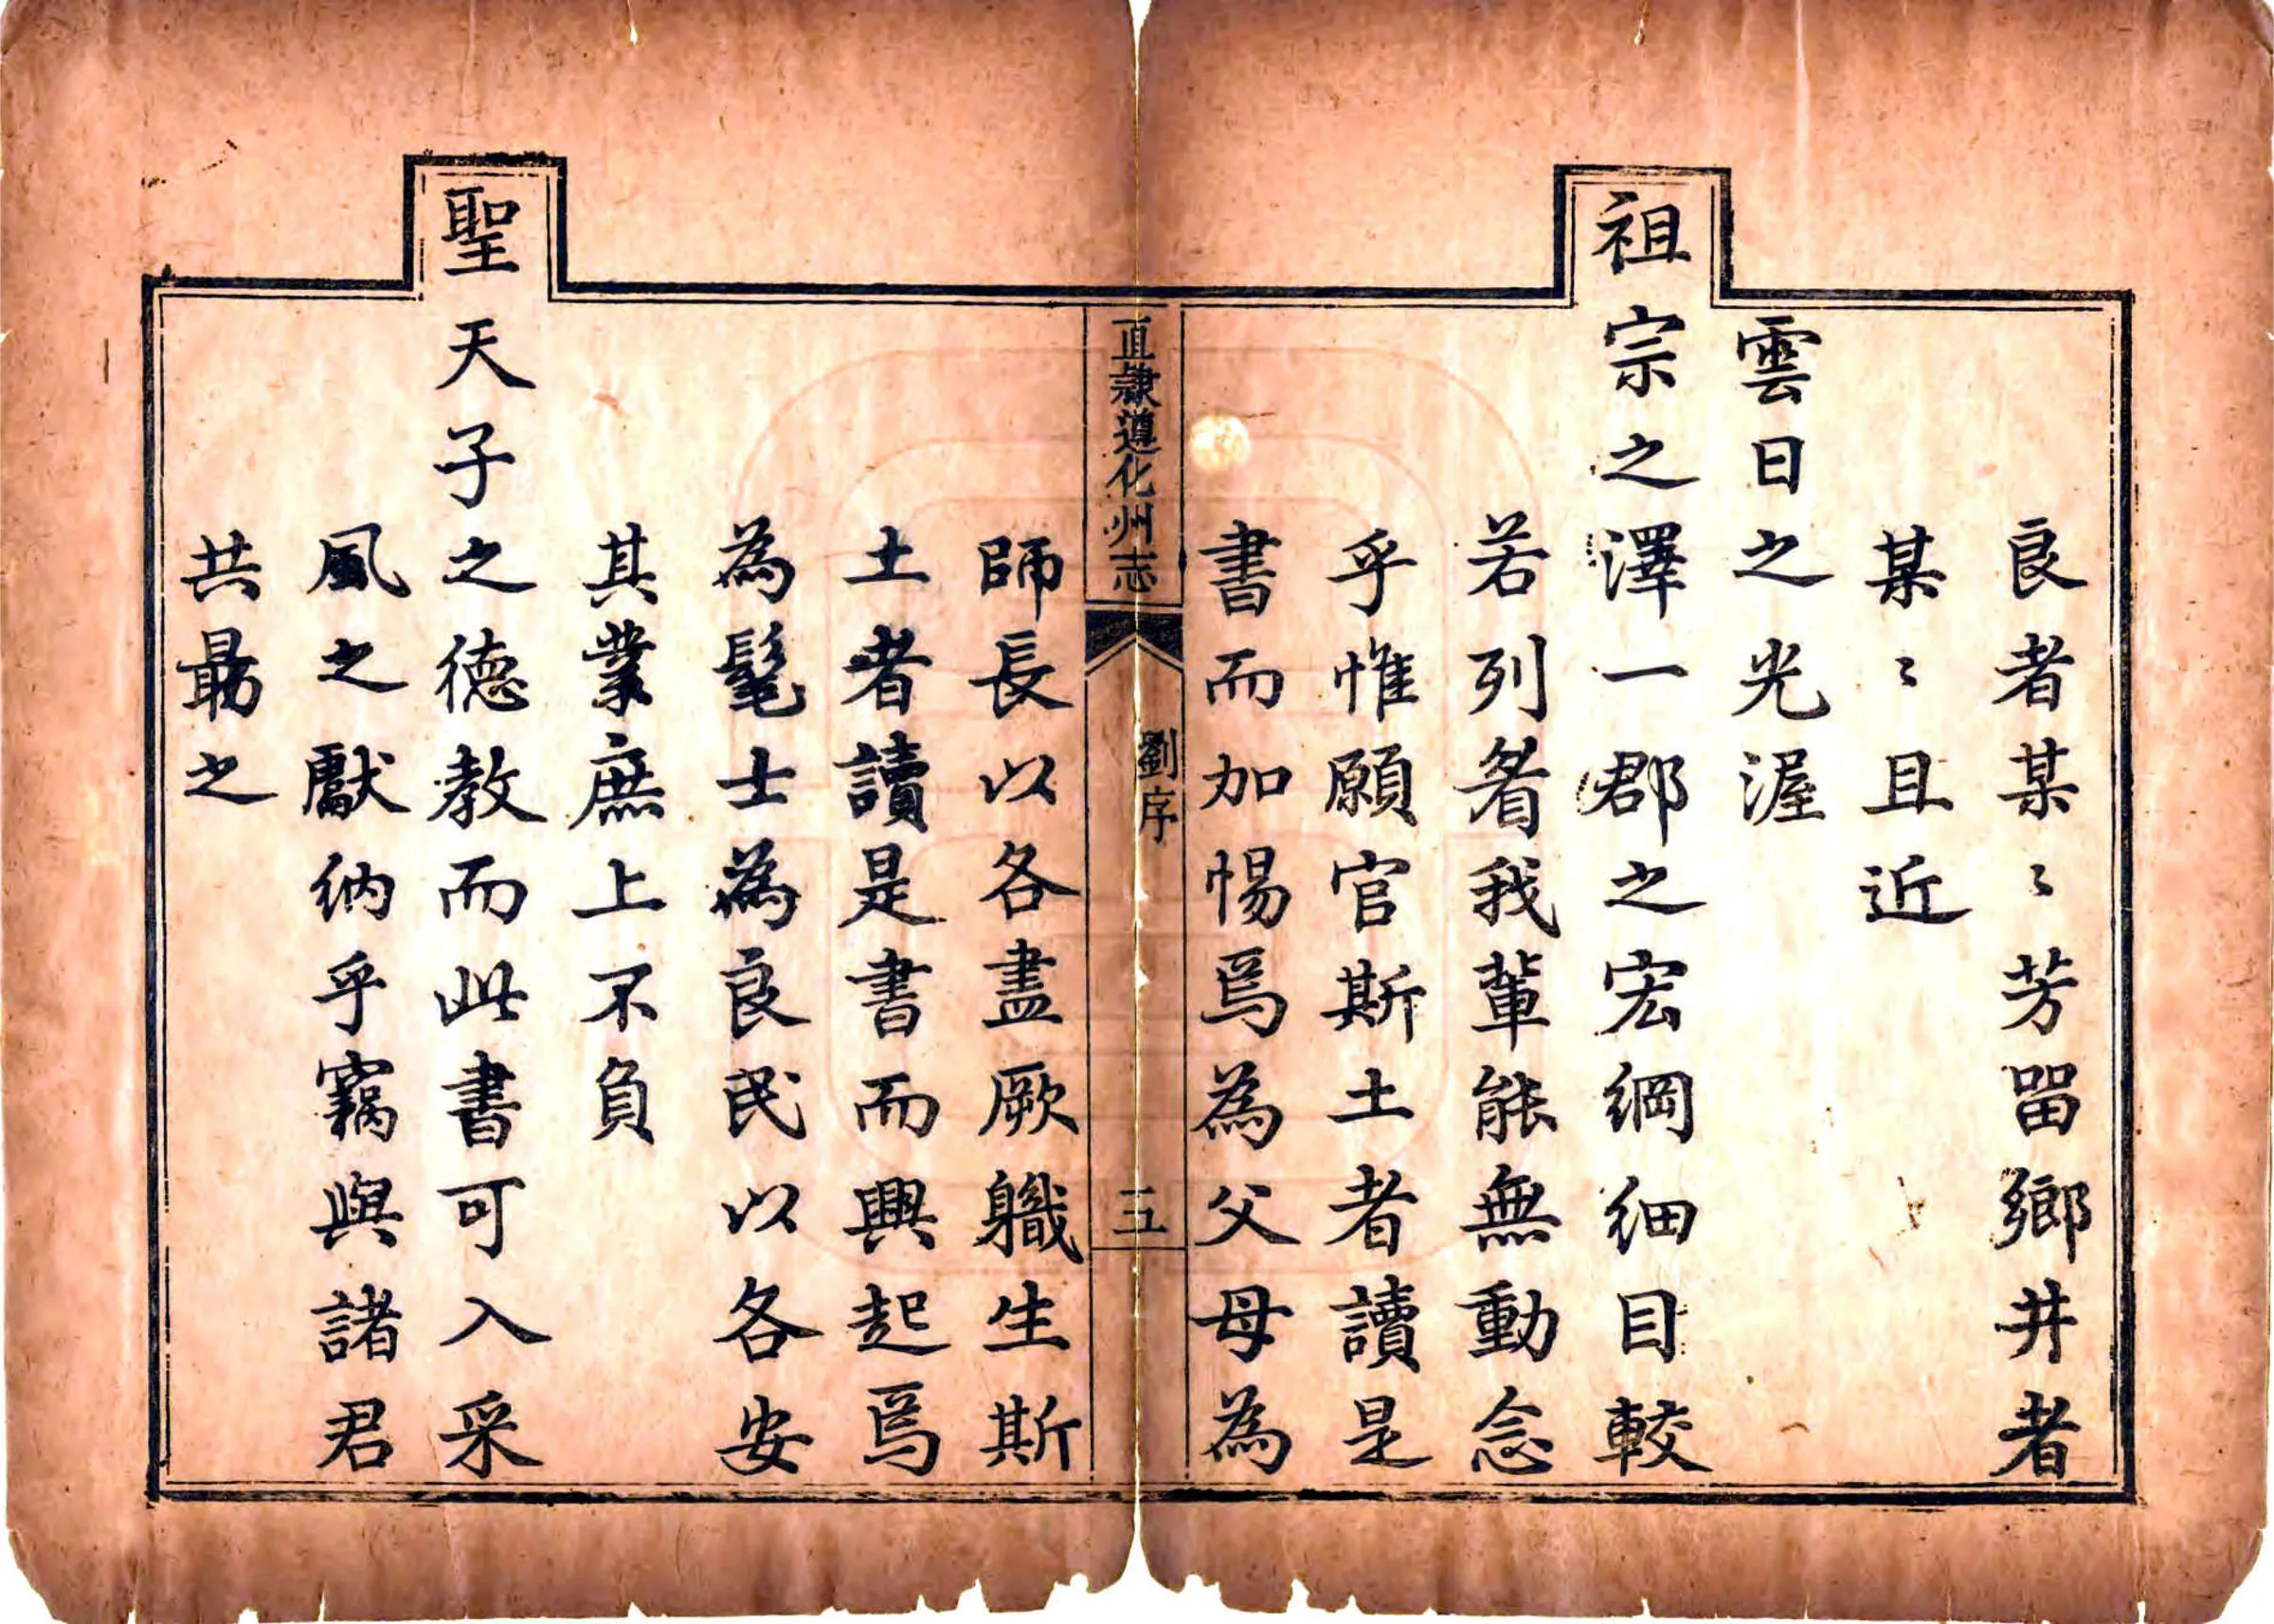 良者某〻芳留鄉井者
某〻且近
雲日之光渥
祖宗之澤一郡之宏綱細目較
若列眉我輩能無動念
乎惟願官斯土者讀是
書而加惕焉為父母為
直隸遵化州志
劉序
五
師長以各盡厥職生斯
土者讀是書而興起焉
為髦士為良民以各安
其業庶上不負
聖天子之德教而此書可入采
風之獻納乎竊與諸君
共勗之